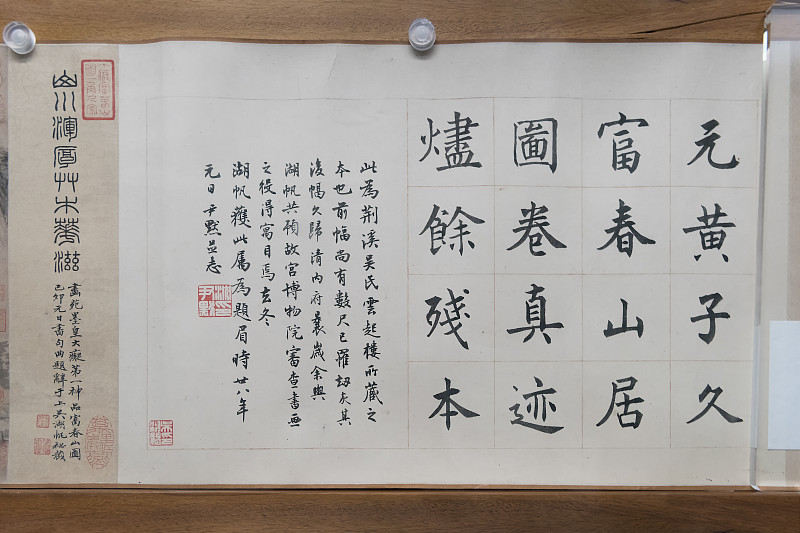 元黄子久
富春山居
圖卷真迹
燼餘殘本
此為荆溪吴氏雲起樓所藏之
本也前幅尚有數尺已罹劫灰其
後幅久歸清内府曩歲余與
湖帆共預故宫博物院審查書画
之役得寓目焉玄冬
湖帆獲此属為題眉時廿八年
元日尹默并志
山川渾厚艸木華滋
畫苑墨皇大癡第一神品富春山圖
己卯元日書句曲題辭于上吴湖帆秘藏